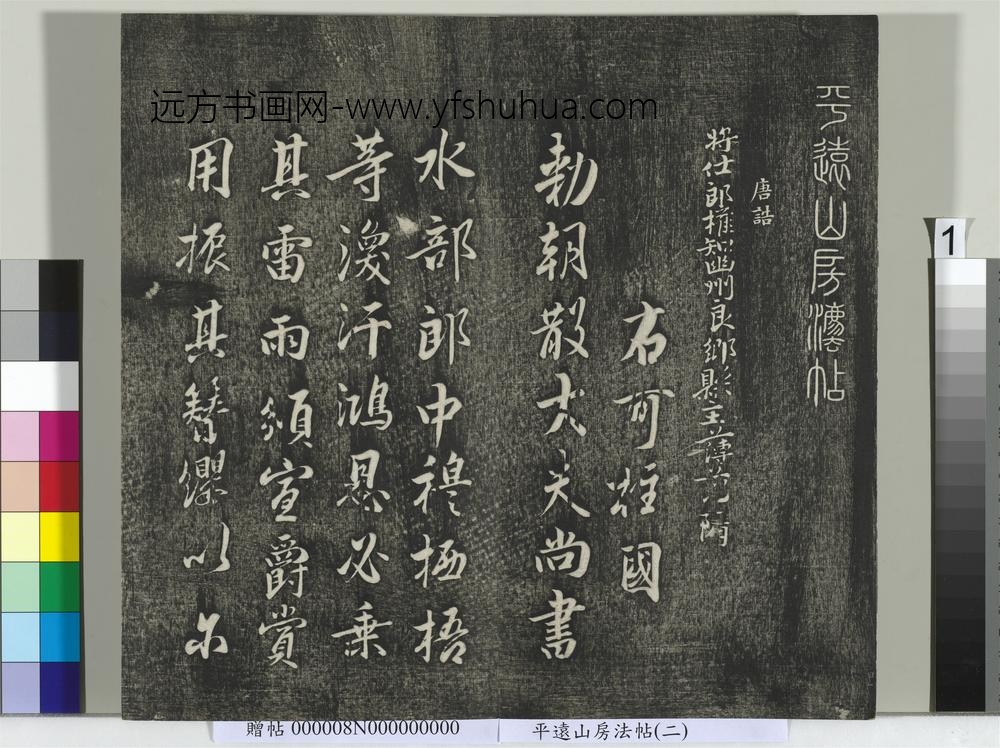 平遠山房法帖
唐誥
將仕郎權知幽州良鄉縣主簿
右可柱國
勅朝散大夫尚書
水部郎中穆栖梧
等渙汗鴻恩必乘
其雷雨頒宣爵賞
用振其簪纓以尔
远方书画网-www.yfshuhua.com
1
贈帖 000008N000000000
平遠山房法帖(二)